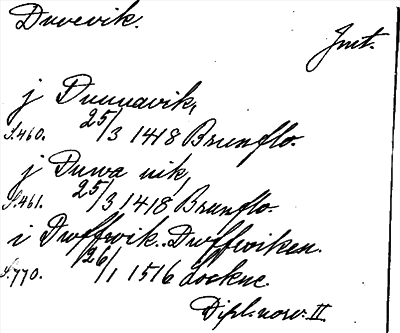 Duvevik.
Jmt.
j Duuuavik,
S.460. 25/3 1418 Brunflo.
j Duwa uik,
S.461. 25/3 1418 Brunflo.
i Dwffwik. Dwffwiken.
S.770. 26/1 1516 Lockne.
Dipl. norv. II